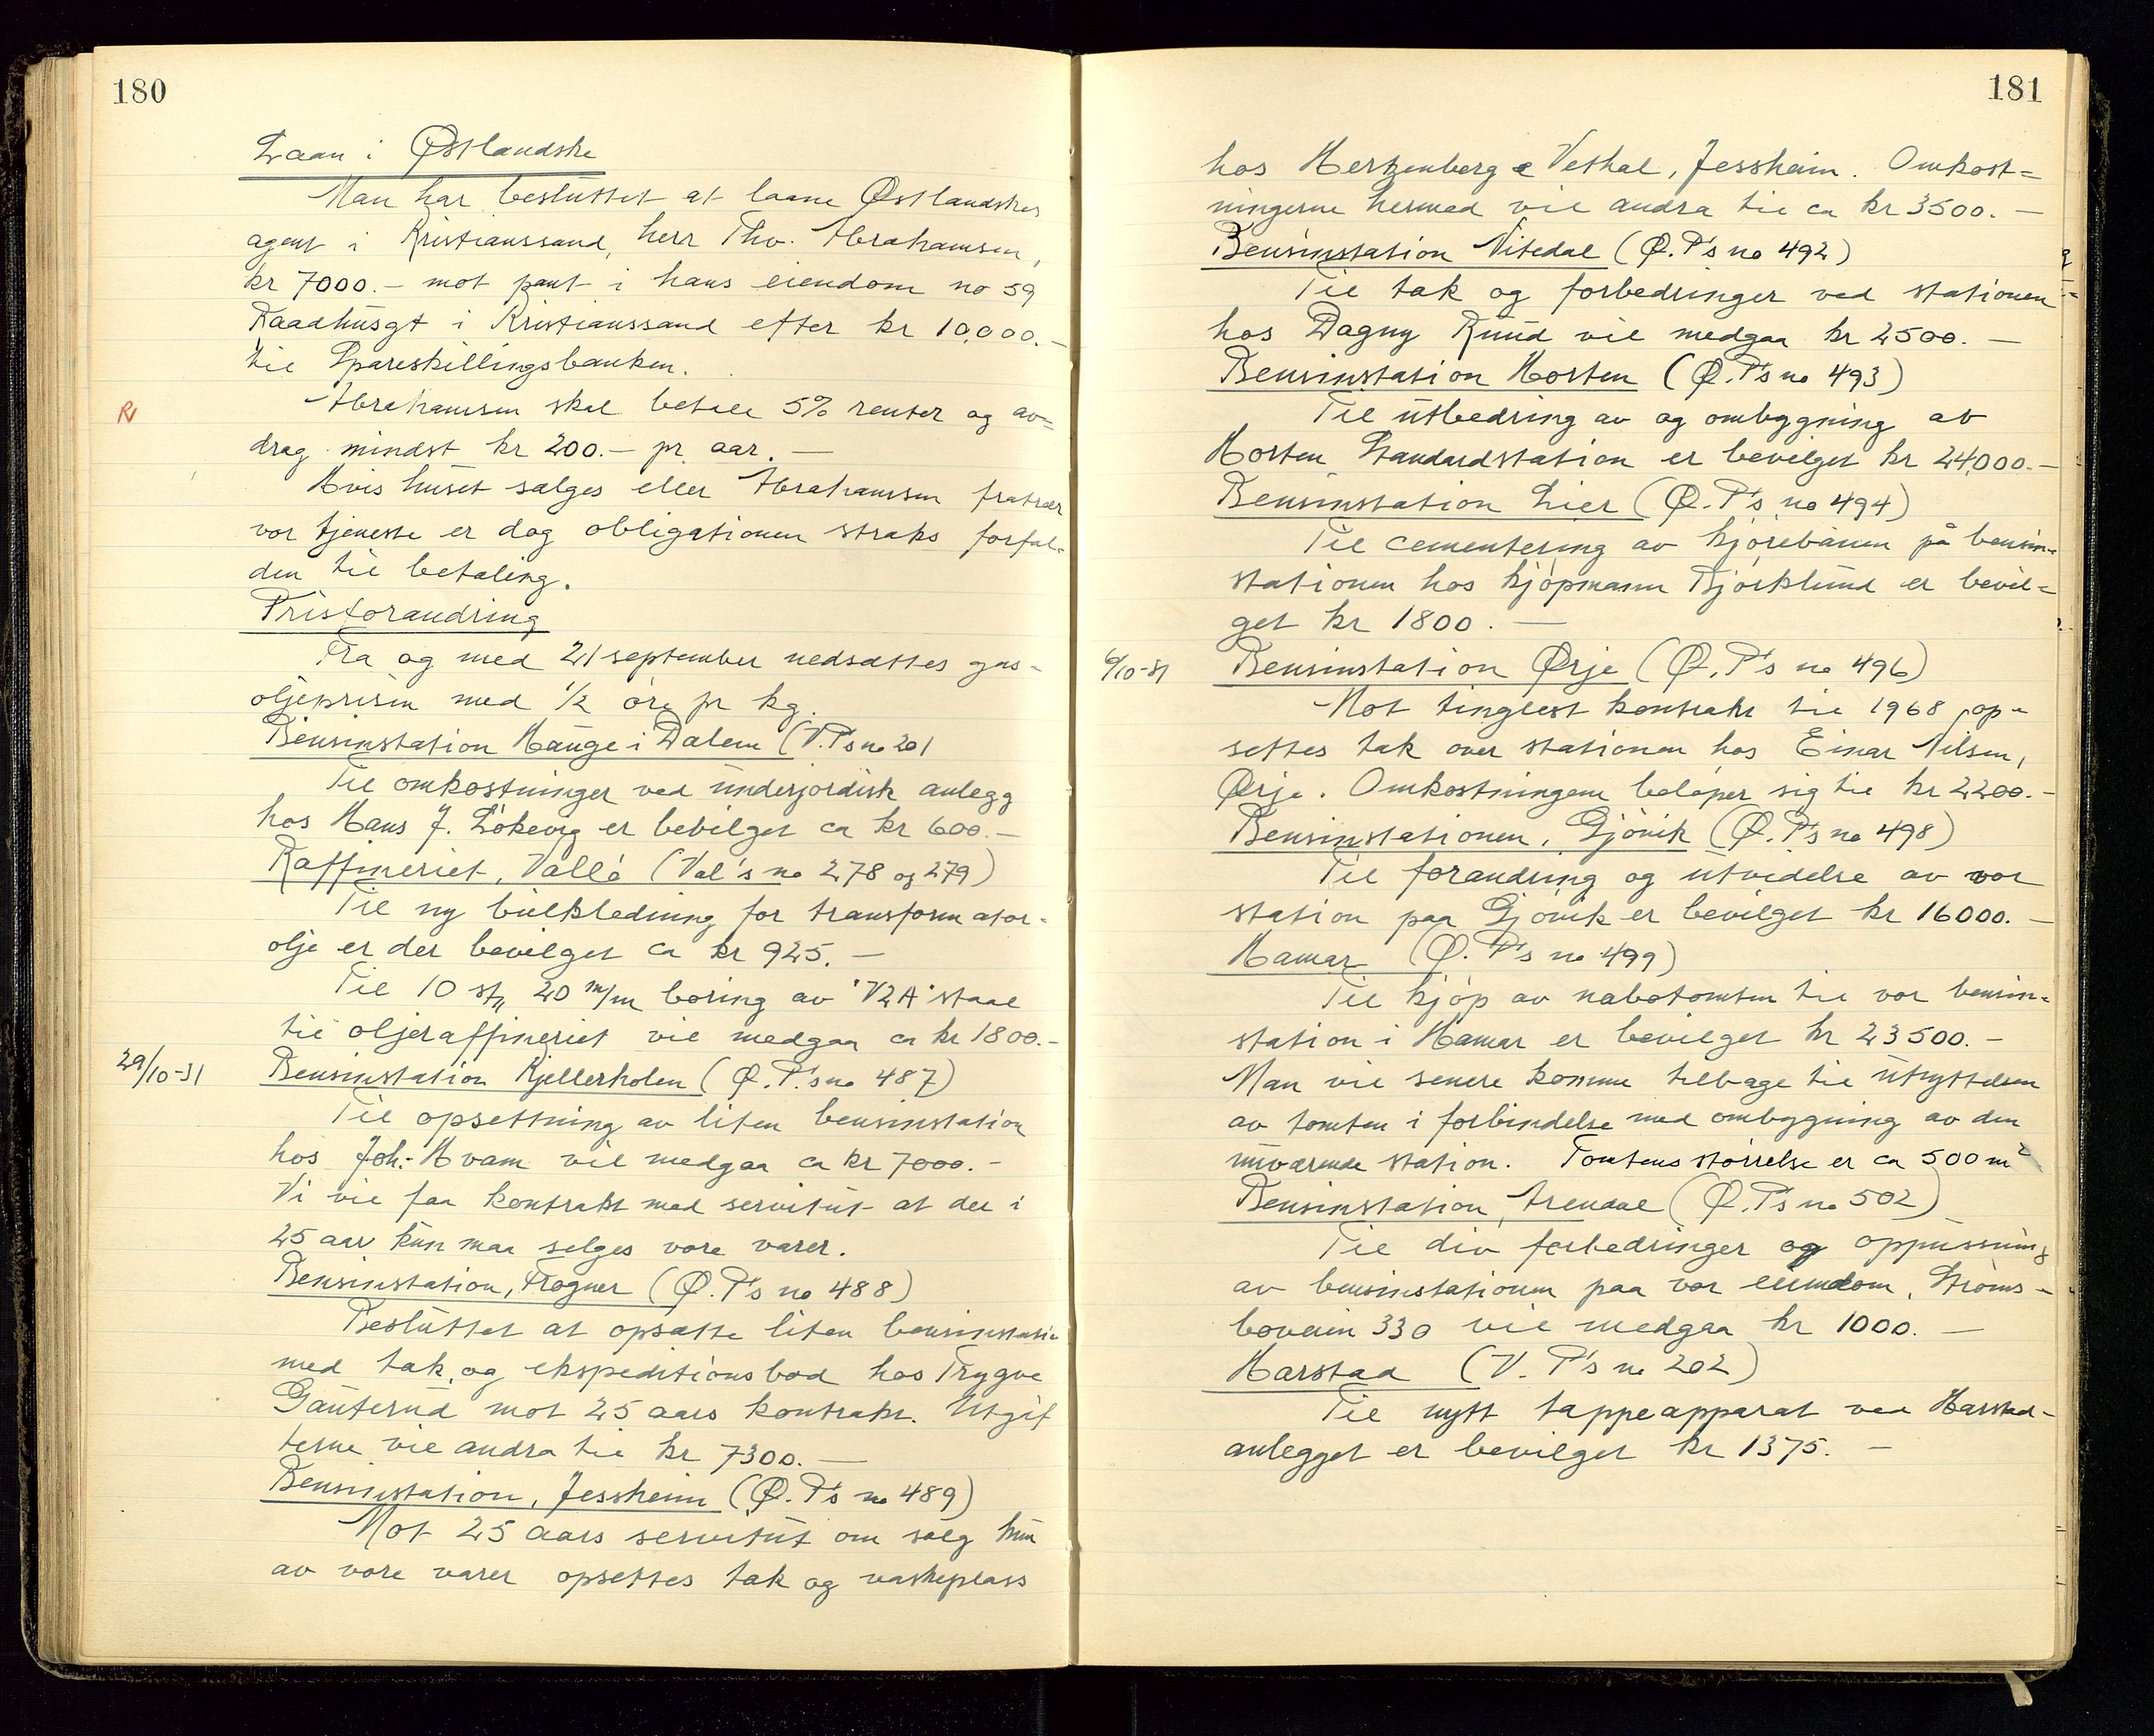 180
Laan i Østlandske
Man har besluttet at laane Østlandskes
agent i Kristianssand, herr Thv. Abrahamsen,
kr 7000.- mot pant i hans eiendom no 59
Raadhusgt i Kristianssand efter kr 10,000.-
til Spareskillingsbanken.
Abrahamsen skal betale 5% renter og av=
drag mindst kr 200.- pr. aar. —
Hvis huset sælges eller Abrahamsen fratrær
vor tjeneste er dog obligationen straks forfal-
den til betaling.
Prisforandring
Fra og med 21 september nedsættes gas-
oljeprisen med ½ øre pr kg.
Bensinstation Hauge i Dalene (V.P's no 201
Til omkostninger ved underjordisk anlegg
hos Hans J. Løkevig er bevilget ca kr 600.-
Raffineriet, Vallø (Val's no 278 og 279)
Til ny bulkledning for transformator-
olje er der bevilget ca kr 925. —
Til 10 st, 20 m/m boring av "V2A" staal
til oljeraffineriet vil medgaa ca kr 1800.-
29/10-31 Bensinstation Kjellerholen (Ø.P.'s no 487)
Til opsettning av liten bensinstation
hos Joh. Hvam vil medgaa ca kr 7000.-
Vi vil faa kontrakt med servitut at der i
25 aar kun maa selges vore varer.
Bensinstation, Frogner (Ø.P's no 488)
Besluttet at opsætte liten bensinstatio
med tak, og ekspeditionsbod hos Trygve
Gauterud mot 25 aars kontrakt. Utgif
terne vil andra til kr 7300. —
Bensinstation, Jessheim (Ø.P's no 489)
Mot 25 aars servitut om salg kun
av vore varer opsettes tak og vaskeplass
181
hos Hertzenberg & Vethal, Jessheim. Omkost=
ningerne hermed vil andra til ca kr 3500. —
Bensinstation Nitedal (Ø.P's no 492)
Til tak og forbedringer ved stationen
hos Dagny Ruud vil medgaa kr 2500. —
Bensinstation Horten (Ø.P's no 493)
Til utbedring av og ombygning av
Horten Standardstation er bevilget kr 24,000.-
Bensinstation Lier (Ø.P's no 494)
Til cementering av kjørebanen på bensin-
stationen hos kjøpmann Bjørklund er bevil=
get kr 1800. —
6/10-31 Bensinstation Ørje (Ø.P's no 496)
Mot tinglest kontrakt til 1968 op-
settes tak over stationen hos Einar Nilsen,
Ørje. Omkostningene beløper sig til kr 2200.-
Bensinstationen, Gjøvik (Ø.P's no 498)
Til forandring og utvidelse av vor
station paa Gjøvik er bevilget kr 16000. —
Hamar (Ø.P's no 499)
Til kjøp av nabotomten til vor bensin-
station i Hamar er bevilget kr 23500. -
Man vil senere komme tilbage til utnyttelsen
av tomten i forbindelse med ombygning av den
nuværende station. Tomtens størrelse er ca 500 m²
Bensinstation, Arendal (Ø.P's no 502)
Til div forbedringer og oppussning
av bensinstationen paa vor eiendom, Strøms-
boveien 330 vil medgaa kr 1000. —
Harstad (V.P's no 202)
Til nytt tappeapparat ved Harstad-
anlegget er bevilget kr 1375. —